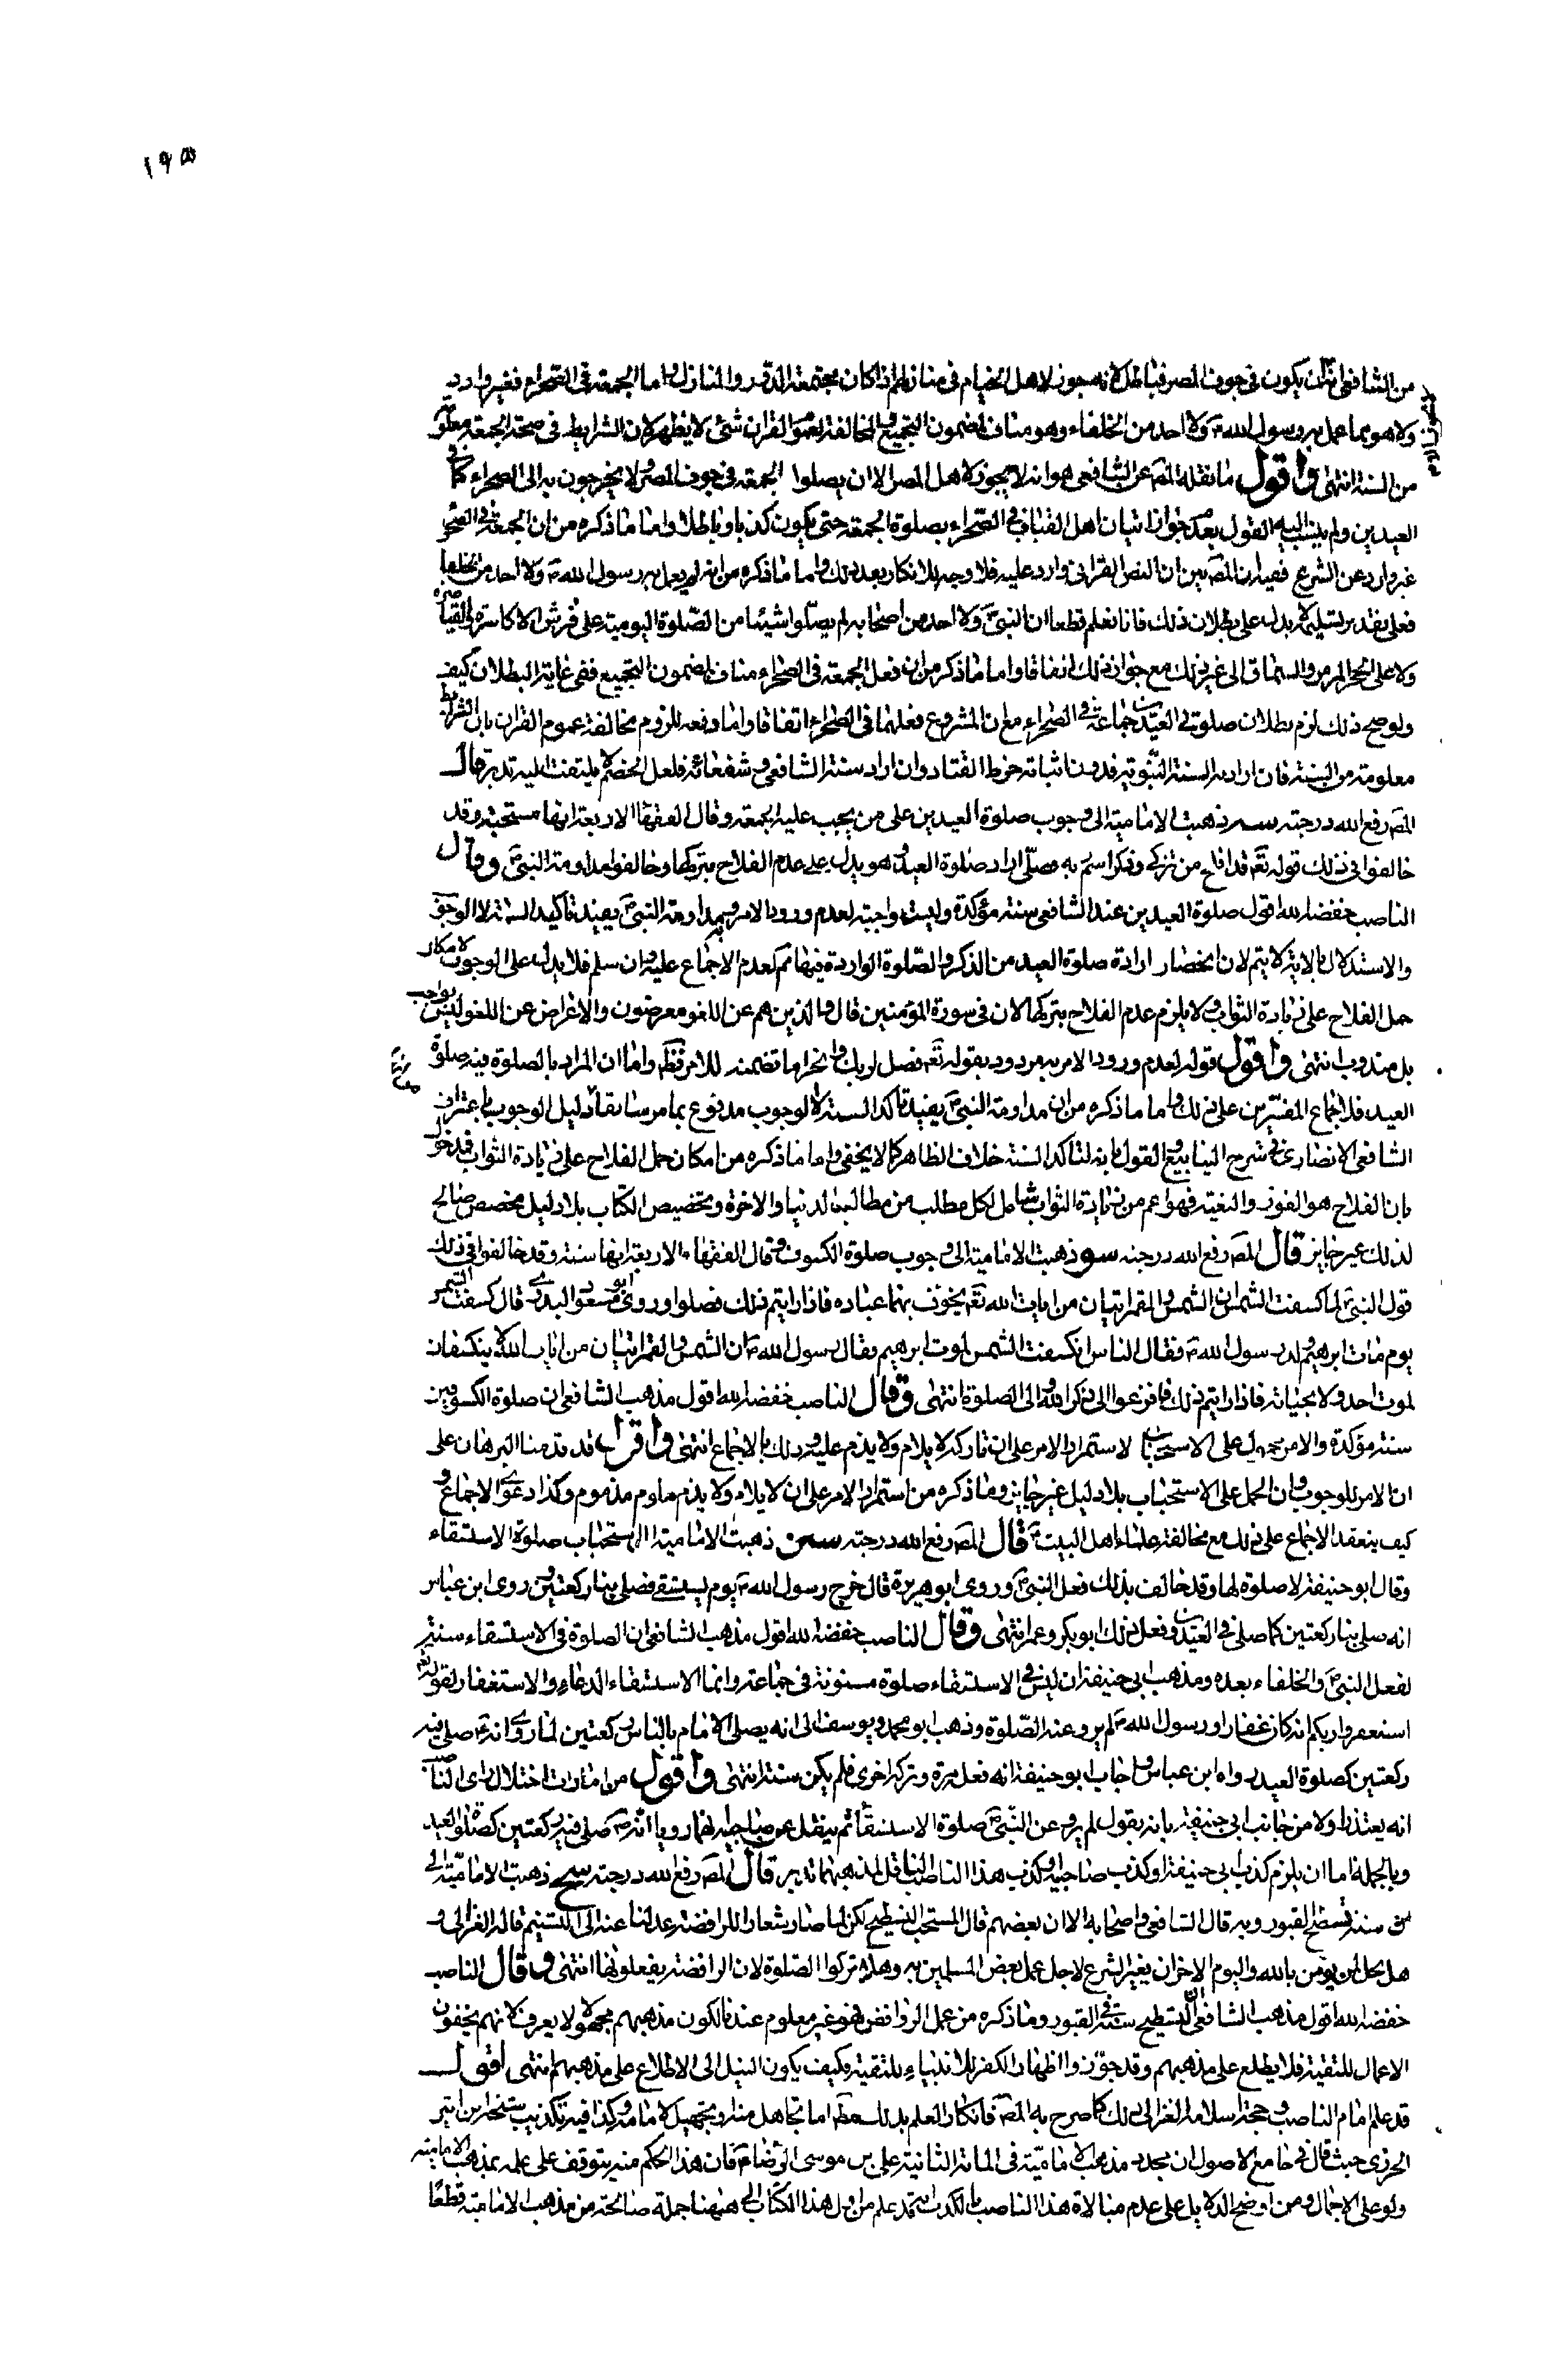 ١٩٥
من الشافعي انه ان يكون في جوف المصر فباطل لانه يجوز لاهل الخيام في منازلهم اذا كان مجتمعة الدور والمنازل واما الجمعة في الصحراء فغير وارد
ولا هو مما عمل به رسول الله ص ولا احد من الخلفاء وهو مناف لمضمون التجميع والمخالفة لعموم القران شئ لا يظهر لان الشرايط في صحة الجمعة معلومة
من السنة انتهى واقول ما نقله المص عن الشافعي هو انه لا يجوز لاهل المصر الا ان يصلوا الجمعة في جوف المصر ولا يخرجون به الى الصحراء كما في
العيدين ولم ينسب اليه القول بعدم جواز اتيان اهل القباب في الصحراء بصلوة الجمعة حتى يكون كذبا وباطلا واما ما ذكره من ان الجمعة في الصحراء
غير وارد عن الشرع ففيه ان المص بين ان النص القراني وارد عليه فلا وجه للانكار بعد ذلك واما ما ذكره من انه لم يعمل به رسول الله ص ولا احد من الخلفاء
فعلى تقدير تسليمه لا يدل على بطلان ذلك فانا نعلم قطعا ان النبي ص ولا احد من اصحابه لم يصلوا شيئا من الصلوة اليومية على فرش الاكاسرة والقياصرة
ولا على الحجر المرمر والسماق الى غير ذلك مع جواز ذلك اتفاقا واما ما ذكر من ان فعل الجمعة في الصحراء مناف لمضمون التجميع ففي غاية البطلان كيف
ولو صح ذلك لزم بطلان صلوتي العيدين جماعة في الصحراء مع ان المشروع فعلهما في الصحراء اتفاقا واما دفعه للزوم مخالفة عموم القران بان الشرايط
معلومة من السنة فان اراد به السنة النبوية فدون اثباته خرط القتاد وان اراد سنة الشافعي وشفعائه فلعل الخصم لا يلتفت اليه تدبر قال
المص رفع الله درجته ذهبت الامامية الى وجوب صلوة العيدين على من يجب عليه الجمعة وقال الفقهاء الاربعة انها مستحبة وقد
خالفوا في ذلك قوله تع قد افلح من تزكى وذكر اسم ربه فصلى اراد صلوة العيد وهو يدل على عدم الفلاح بتركها وخالفوا مداومة النبي ص وقال
الناصب خفضه الله اقول صلوة العيدين عند الشافعي سنة مؤكدة وليست واجبة لعدم ورود الامر به ومداومة النبي ص يفيد تأكيد السنة لا الوجوب
والاستدلال بالاية لا يتم لان انحصار ارادة صلوة العيد من الذكر والصلوة الواردة فيها مم لعدم الاجماع عليه وان سلم فلا يدل على الوجوب لامكان
حمل الفلاح على زيادة الثواب ولا يلزم عدم الفلاح بتركها لان في سورة المؤمنين قال والذين هم عن اللغو معرضون والاعراض عن اللغو ليس بواجب
بل مندوب انتهى واقول قوله لعدم ورود الامر به مردود بقوله تع فصل لربك وانحر اما تضمنه للامر فظ واما ان المراد بالصلوة فيه صلوة
العيد فلاجماع المفسرين على ذلك واما ما ذكره من ان مداومة النبي ص يفيد تأكد السنة لا الوجوب مدفوع بما مر سابقا من دليل الوجوب باعتراف
الشافعي الانصاري في شرح الينابيع والقول بانه لتأكد السنة خلاف الظاهر كما لا يخفى واما ما ذكره من امكان حمل الفلاح على زيادة الثواب فمدخول
بان الفلاح هو الفوز والبغية فهو اعم من زيادة الثواب شامل لكل مطلب من مطالب الدنيا والاخرة وتخصيص الكتاب بلا دليل مخصص صالح
لذلك غير جايز قال المص رفع الله درجته ذهبت الامامية الى وجوب صلوة الكسوف وقال الفقهاء الاربعة انها سنة وقد خالفوا في ذلك
قول النبي ص لما كسفت الشمس ان الشمس والقمر ايتان من ايات الله تع يخوف بهما عباده فاذا رايتم ذلك فصلوا وروى ابو مسعود البدري قال كسفت الشمس
يوم مات ابرهيم ولد رسول الله ص فقال الناس انكسفت الشمس لموت ابرهيم فقال رسول الله ص ان الشمس والقمر ايتان من ايات الله لا ينكسفان
لموت احد ولا لحياته فاذا رايتم ذلك فافزعوا الى ذكر الله والى الصلوة انتهى وقال الناصب خفضه الله اقول مذهب الشافعي ان صلوة الكسوفين
سنة مؤكدة والامر محمول على الاستحباب لاستمرار الامر على ان تاركه لا يلام ولا يذم عليه وذلك بالاجماع انتهى واقول قد قدمنا البرهان على
ان الامر للوجوب وان الحمل على الاستحباب بلا دليل غير جايز وما ذكره من استمرار الامر على ان لا يلام ولا يذم ملوم مذموم وكذا دعوى الاجماع و
كيف ينعقد الاجماع على ذلك مع مخالفة علماء اهل البيت ع قال المص رفع الله درجته ذهبت الامامية الى استحباب صلوة الاستسقاء
وقال ابو حنيفة لا صلوة لها وقد خالف بذلك فعل النبي ص وروى ابو هريرة قال خرج رسول الله ص يوم يستسقي فصلى بنا ركعتين وروى ابن عباس
انه صلى بنا ركعتين كما صلى في العيدين وفعل ذلك ابو بكر وعمر انتهى وقال الناصب خفضه الله اقول مذهب الشافعي ان الصلوة في الاستسقاء سنة
لفعل النبي ص والخلفاء بعده ومذهب ابي حنيفة ان ليس في الاستسقاء صلوة مسنونة في جماعة وانما الاستسقاء الدعاء والاستغفار لقوله تع
استغفروا ربكم انه كان غفارا ورسول الله ص لم يرو عنه الصلوة وذهب ابو محمد ويوسف الى انه يصلي الامام بالناس ركعتين لما روي انه ص صلى فيه
ركعتين كصلوة العيد رواه ابن عباس واجاب ابو حنيفة انه فعل مرة وترك اخرى فلم يكن سنة انتهى واقول من امارات اختلال راى الناصب
انه يعتذر اولا من جانب ابي حنيفة بانه يقول لم يرو عن النبي ص صلوة الاستسقاء ثم ينقل عن صاحبيه انهما رويا انه ص صلى فيه ركعتين كصلوة العيد
وبالجملة اما ان يلزم كذب ابي حنيفة او كذب صاحبيه او كذب هذا الناصب الناقل لمذهبهما تدبر قال المص رفع الله درجته ذهبت الامامية الى
ان سنة تسطيح القبور وبه قال الشافعي واصحابه الا ان بعضهم قال المستحب التسطيح لكن لما صار شعارا للرافضة عدلنا عنه الى التسنيم قاله الغزالي و
هل يحل لمن يؤمن بالله واليوم الاخر ان يغير الشرع لاجل عمل بعض المسلمين به وهلا تركوا الصلوة لان الرافضة يفعلونها انتهى وقال الناصب
خفضه الله اقول مذهب الشافعي ان التسطيح سنة في القبور وما ذكره من عمل الروافض فهو غير معلوم عندنا لكون مذهبهم مجهولا لا يعرف لانهم يخفون
الاعمال للتقية فلا يطلع على مذهبهم وقد جوزوا اظهار الكفر للانبياء للتقية فكيف يكون السبيل الى الاطلاع على مذهبهم انتهى اقول
قد علم امام الناصب وحجة اسلامه الغزالي ذلك كما صرح به المص فانكار العلم بذلك اما تجاهل منه او تجهيل لامامه وكذا فيه تكذيب شيخه ابن اثير
الجزري حيث قال في جامع الاصول ان مجدد مذهب الامامية في المائة الثانية علي بن موسى الرضا ع فان هذا الحكم منه يتوقف على علمه بمذهب الامامية
ولو على الاجمال ومن اوضح الدلايل على عدم مبالاة هذا الناصب بالكذب انه قد علم من اول هذا الكتاب الى ههنا جملة صالحة من مذهب الامامية قطعا